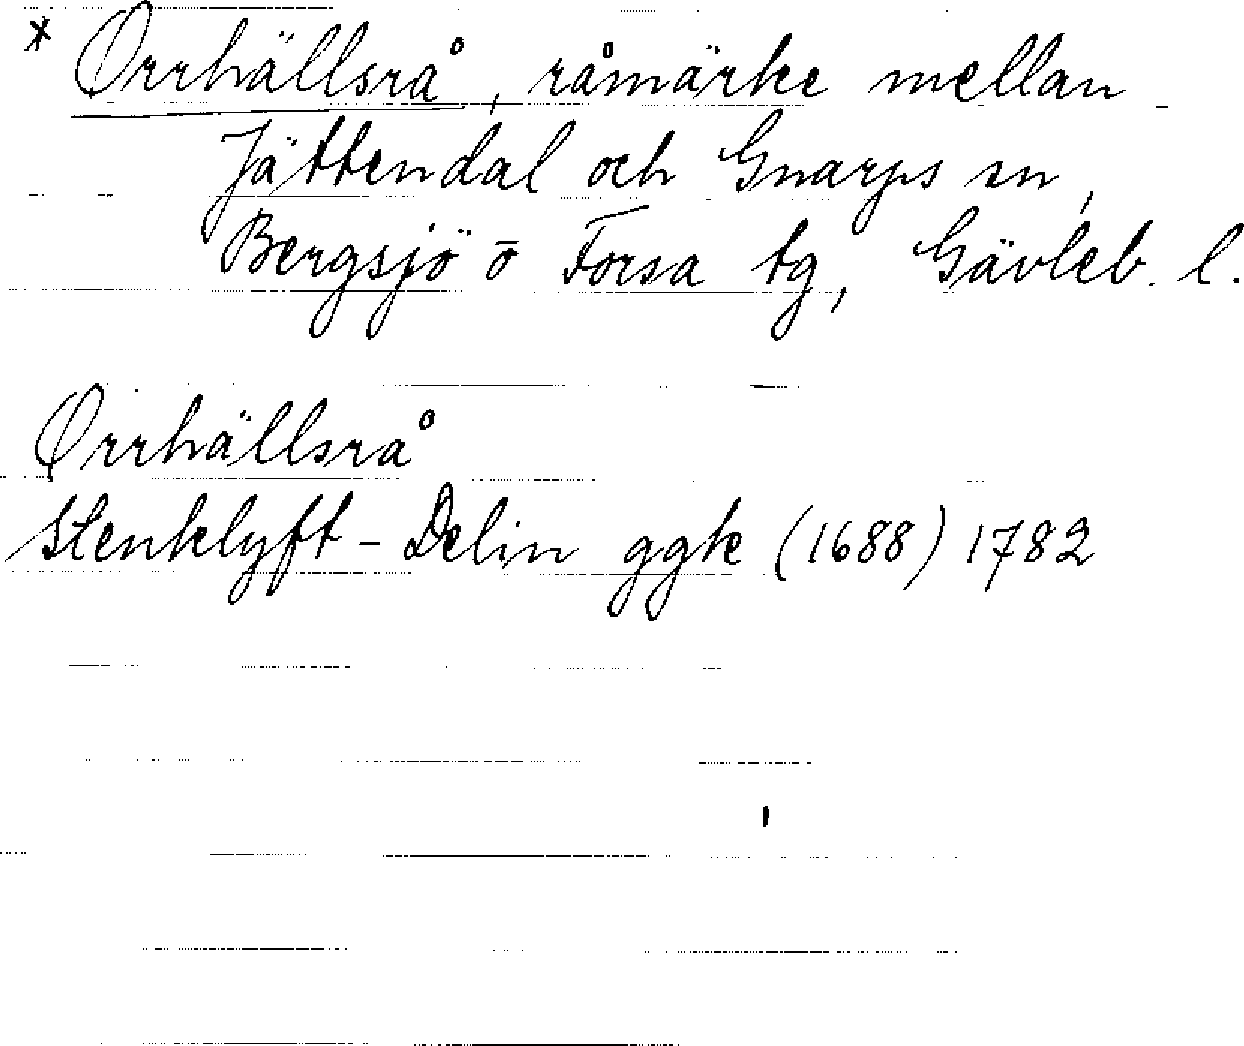 * Orrhällsrå, råmärke mellan
Jättendal och Gnarps sn,
Bergsjö o Forsa tg, Gävleb. l.
Orrhällsrå
Stenklyft - Delin ggk (1688) 1782